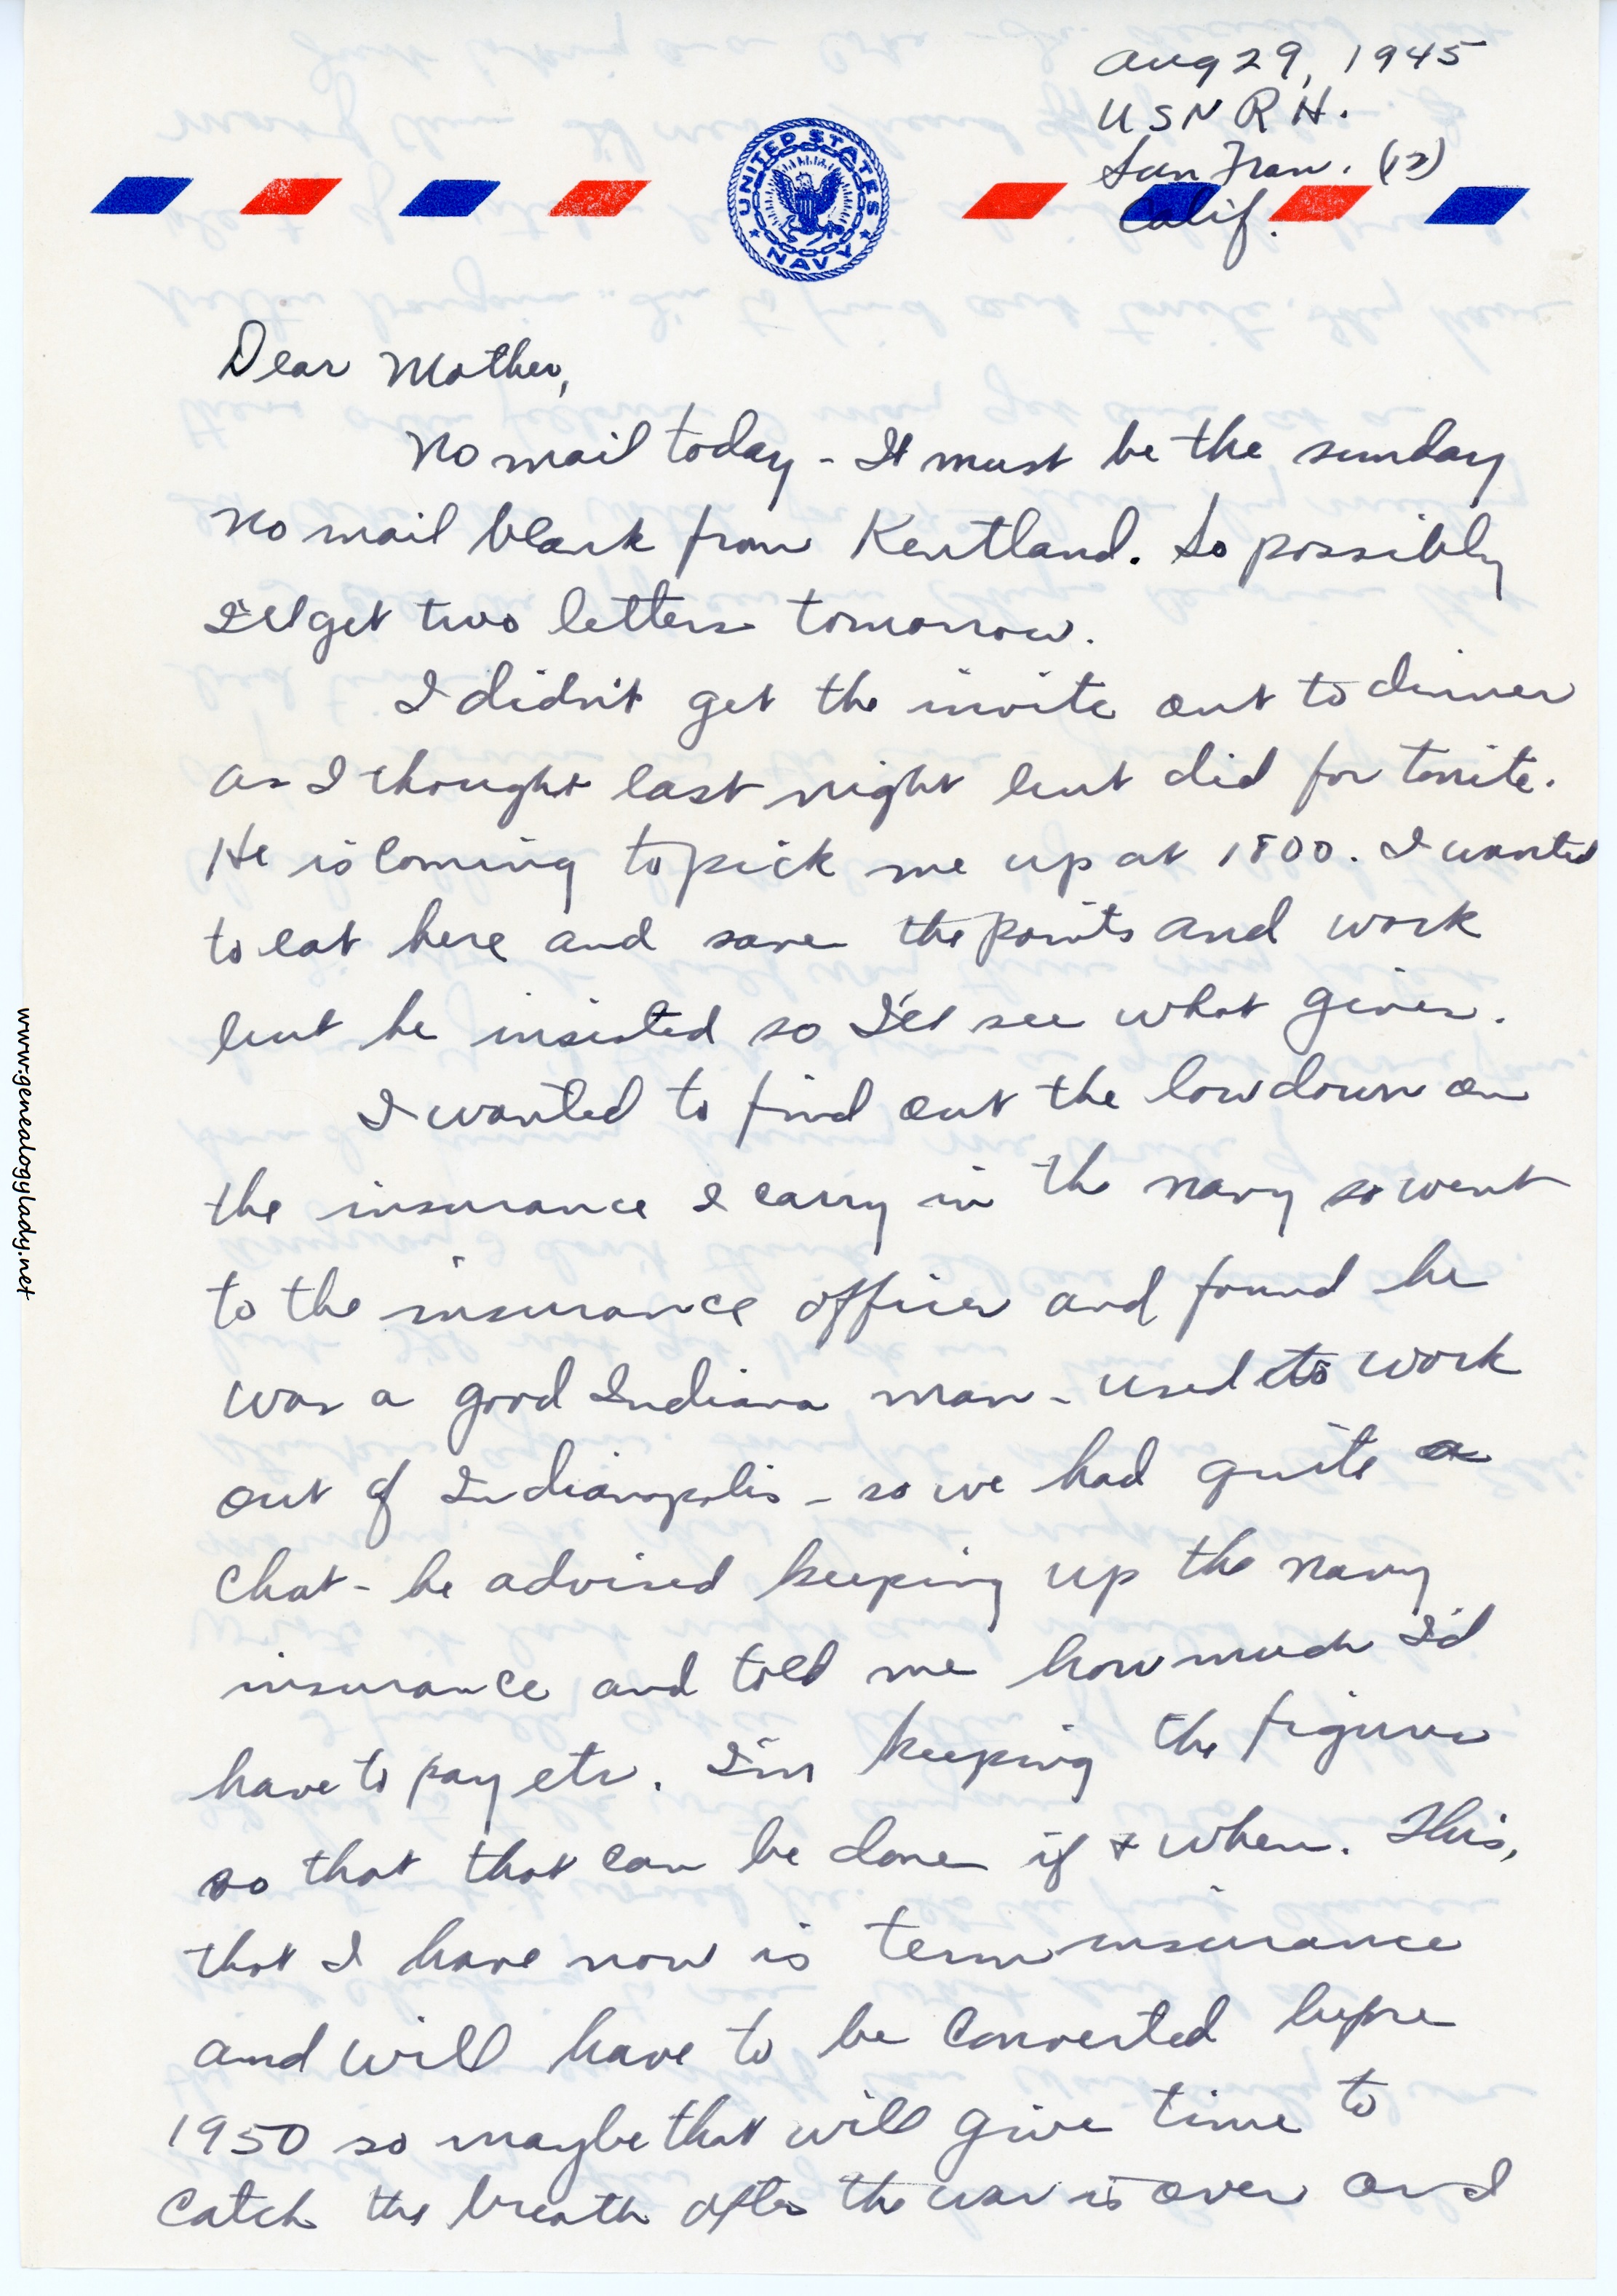 Aug 29, 1945
USNRH.
San Fran. (12)
Calif.
UNITED STATES
NAVY
Dear Mother,
No mail today - It must be the sunday
no mail blank from Kentland. So possibly
I'll get two letters tomorrow.
I didn't get the invite out to dinner
as I thought last night but did for tonite.
He is coming to pick me up at 1800. I wanted
to eat here and save the points and work
but he insisted so I'll see what gives.
I wanted to find out the lowdown on
the insurance I carry in the navy so went
to the insurance officer and found he
was a good Indiana man - used to work
out of Indianapolis - so we had quite a
chat - he advised keeping up the navy
insurance and told me how much I'd
have to pay etc. I'm keeping the figures
so that that can be done if + when. This,
that I have now is term insurance
and will have to be converted before
1950 so maybe that will give time to
catch the breath after the war is over and
www.genealogylady.net